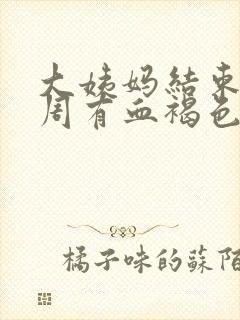 大姨妈结束
周有血褐色
橘子味的蘇陌